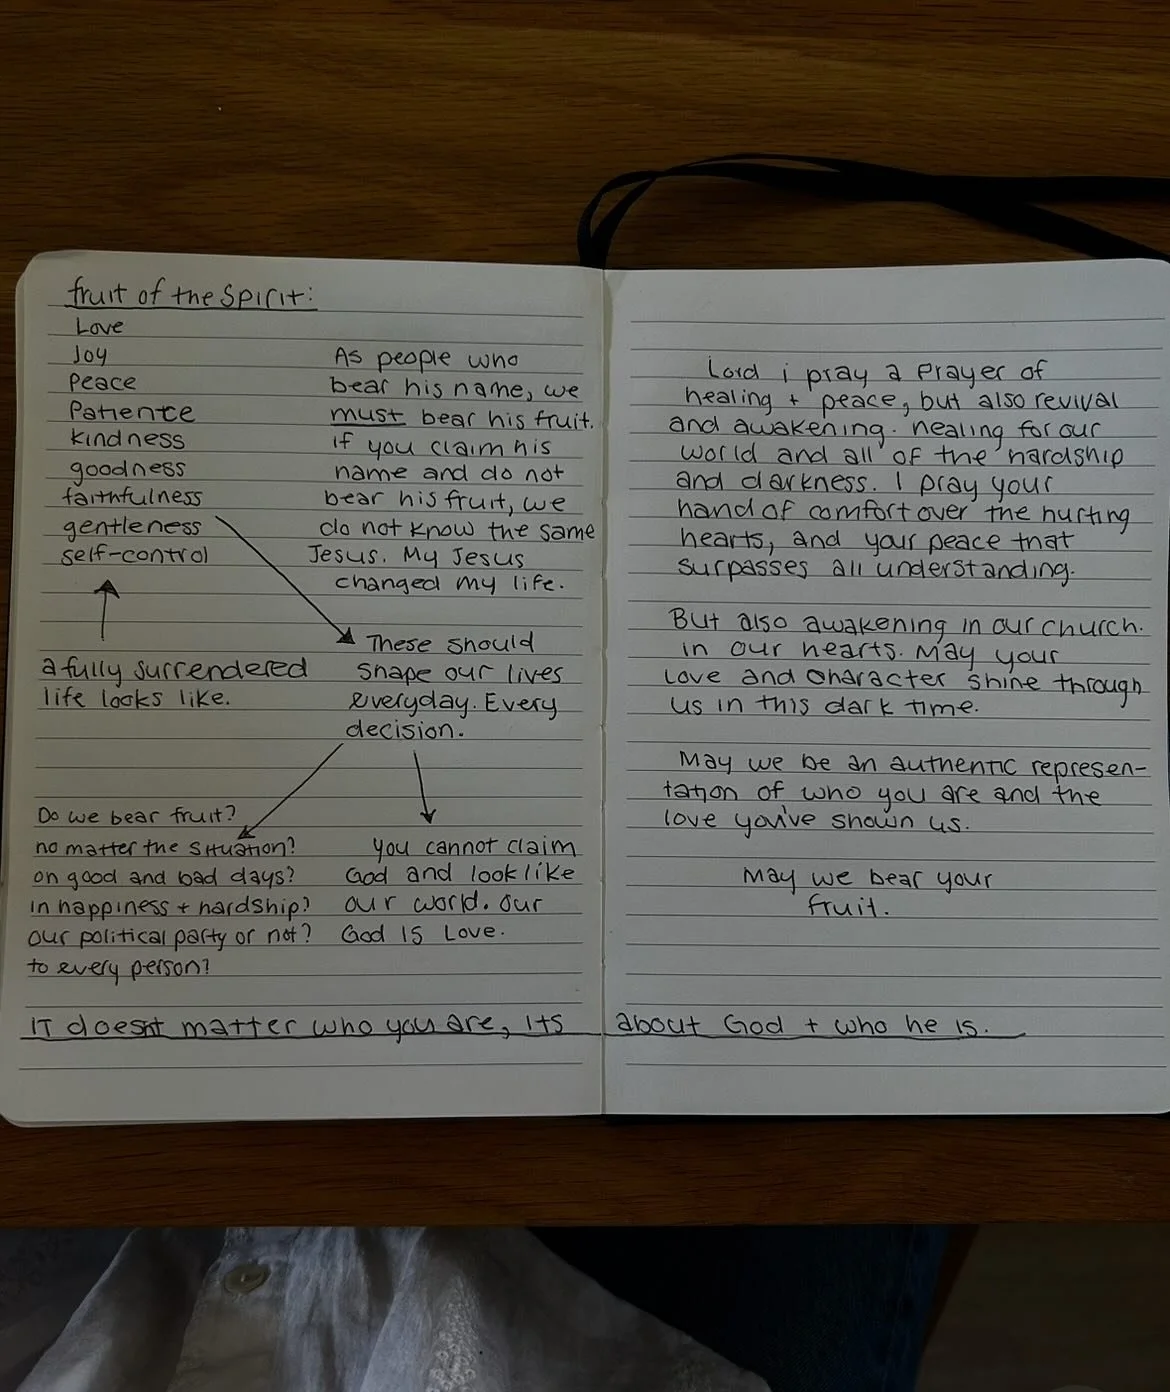 fruit of the Spirit:
Love
Joy
Peace
Patience
kindness
goodness
faithfulness
gentleness
self-control
As people who
bear his name, we
must bear his fruit.
if you claim his
name and do not
bear his fruit, we
do not know the same
Jesus. My Jesus
changed my life.
a fully surrendered
life looks like.
These should
shape our lives
everyday. Every
decision.
Do we bear fruit?
no matter the situation?
on good and bad days?
in happiness + hardship?
our political party or not?
to every person?
you cannot claim
God and look like
our world. Our
God is Love.
Lord i pray a prayer of
healing + peace, but also revival
and awakening. healing for our
world and all of the hardship
and darkness. I pray your
hand of comfort over the hurting
hearts, and your peace that
surpasses all understanding.
But also awakening in our church.
in our hearts. May your
love and character shine through
us in this dark time.
May we be an authentic represen-
tation of who you are and the
love you've shown us.
May we bear your
fruit.
IT doesnt matter who you are, its about God + who he is.